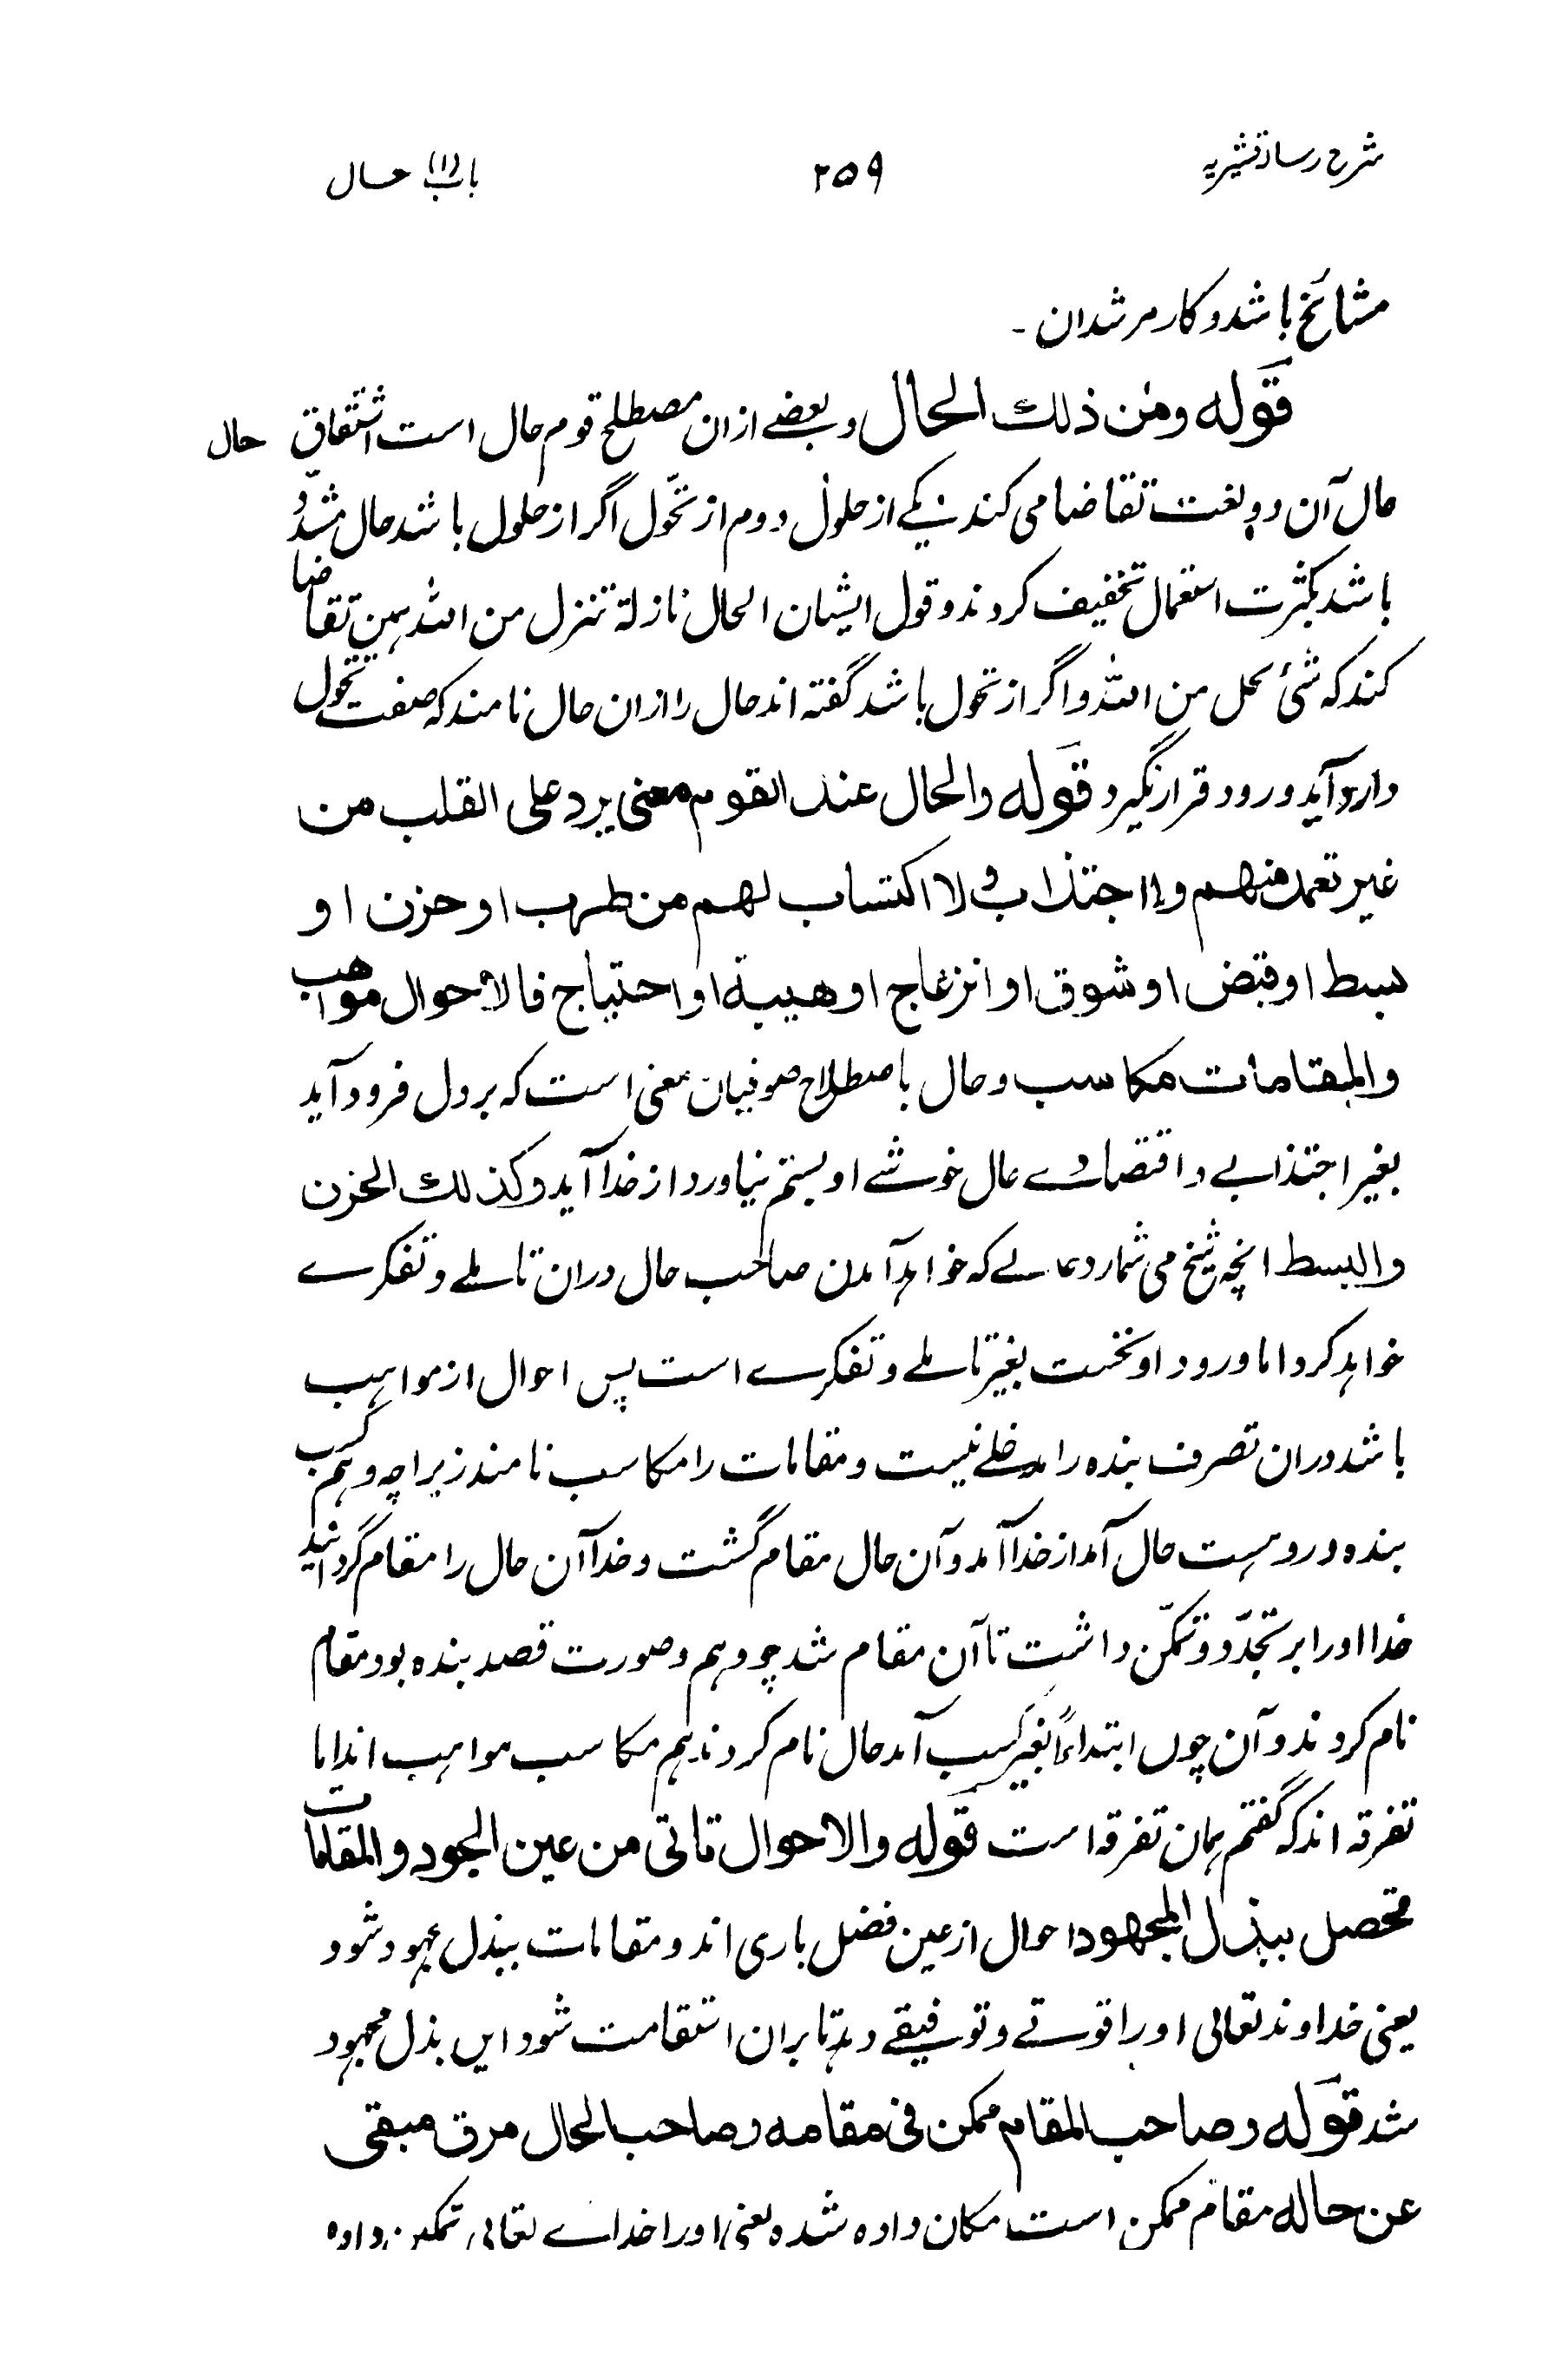 شرح رسالہ قشیریہ ۲۵۹ باب (۱) حال
مشائخ باشد و کار مرشدان ۔
قوله ومن ذلك الحال و بعضے ازان مصطلح قوم حال است اشتقاق حال
حال آن دو لغت تقاضا می کند یکے از حلول دوم از تحّول اگر از حلول باشد حال مشدّد
باشد بکثرت استعمال تخفیف کردند و قول ایشان الحال نازلة تنزل من اللہ ہمین تقاضا
کند کہ شئ یحل من اللہ و اگر از تحول باشد گفتہ اند حال را ازان حال نامند کہ صفت تحول
دارد آید و رود قرار نگیرد قوله والحال عند القوم معنی یرد علی القلب من
غیر تعمد منهم ولا اجتذاب ولا اکتساب لهم من طرب او حزن او
بسط او قبض او شوق او انزعاج او هیبة او احتیاج فالاحوال مواهب
والمقامات مکاسب و حال باصطلاح صوفیان معنی است کہ بر دل فرود آید
بغیر اجتذابے و اقتصادے حال خوشے او بستم نیاورد از خدا آید وکذلك الحزن
والبسط انچہ شیخ می شمارد حالے کہ خواہد آمدن صاحب حال دران تاملے و تفکرے
خواہد کرد اما ورود او نخست بغیر تاملے و تفکرے است پس احوال از مواہب
باشد دران تصرف بندہ را مدخلے نیست و مقامات را مکاسب نامند زیراچہ وہم کسب
بندہ درو ہست حال آمد از خدا آمد و آن حال مقام گشت و خدا آن حال را مقام گردانید
خدا اورا بر تجدّد و تمکّن داشت تا آن مقام شد چو وہم و صورت قصد بندہ بود مقام
نام کردند و آن چوں ابتداءً بغیر کسب آمد حال نام کردند ہم مکاسب مواہب اند اما
تفرقہ اند کہ گفتم ہمان تفرقہ است قوله والاحوال تاتی من عین الجود والمقامات
تحصل ببذل المجهود احوال از عین فضل باری اند و مقامات ببذل مجہود شود
یعنی خداوند تعالی اورا قوتے و توفیقے دہد تا بران استقامت شود ایں بذل مجہود
شد قوله وصاحب المقام ممکن فی مقامه وصاحب الحال مرق مبقی
عن حاله مقام ممکن است مکان دادہ شدہ یعنی اورا خداے تعالی تمکین دادہ